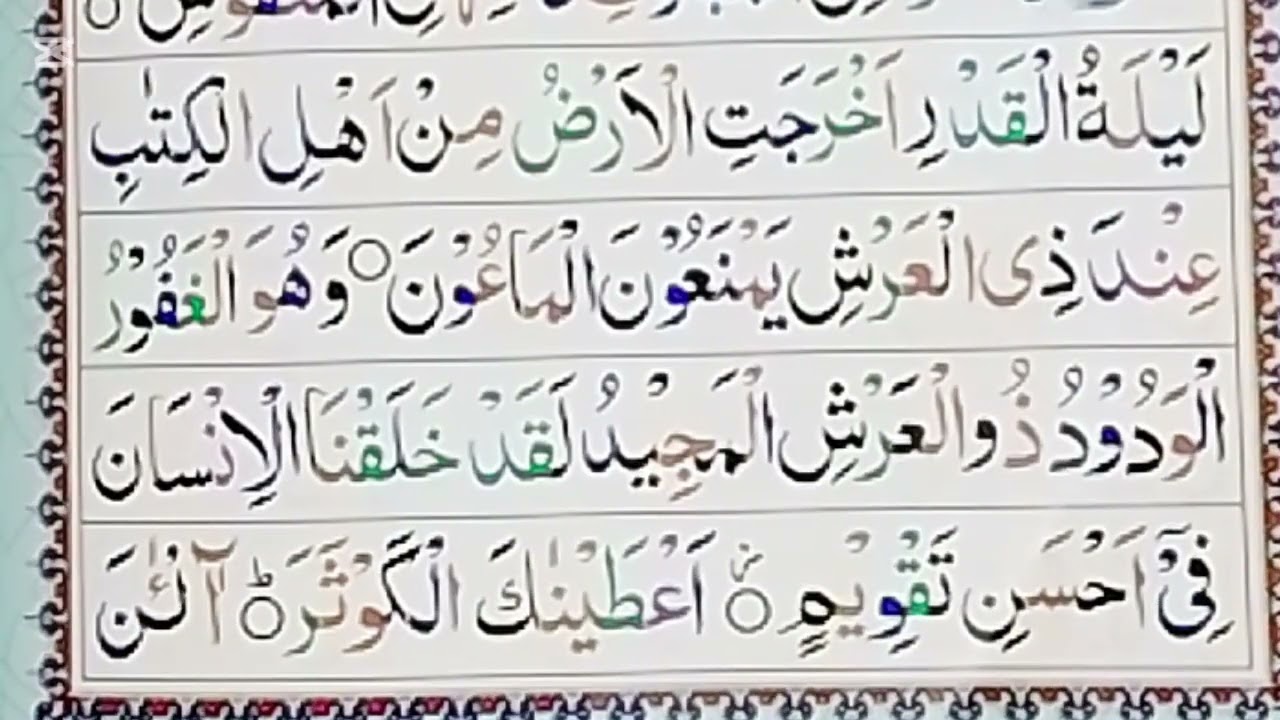 الْمَنْفُوْشِ ○
لَيْلَةُ الْقَدْرِ اَخْرَجَتِ الْاَرْضُ مِنْ اَهْلِ الْكِتٰبِ
عِنْدَ ذِی الْعَرْشِ يَمْنَعُوْنَ الْمَاعُوْنَ ○ وَهُوَ الْغَفُوْرُ
الْوَدُوْدُ ذُو الْعَرْشِ الْمَجِيْدُ لَقَدْ خَلَقْنَا الْاِنْسَانَ
فِیْٓ اَحْسَنِ تَقْوِيْمٍ ○ اَعْطَيْنٰكَ الْكَوْثَرَ ○ؕ آلْـٰٔنَ